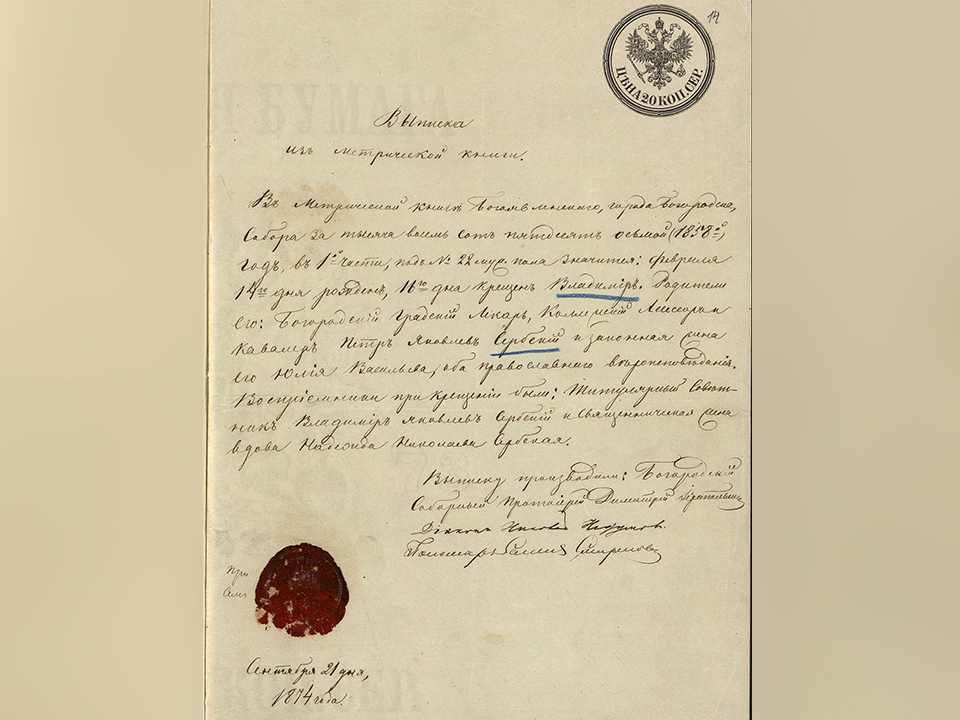 14
ЦѢНА 20 КОП. СЕР.
Выписка
изъ метрической книги.
Въ Метрической книгѣ Богоявленскаго, города Богородска,
Собора за тысяча восемь сотъ пятдесятъ осьмой (1858й)
годъ, въ 1й части, подъ № 22 муж. пола значится: февраля
14го дня рожденъ, 16го дня крещенъ Владиміръ. Родители
его: Богородскій Градскій Лѣкарь, Коллежскій Ассесоръ и
Кавалеръ Петръ Яковлевъ Сербскій и законная жена
его Юлія Васильева, оба православнаго вѣроисповѣданія.
Воспріемники при крещеніи были: Титулярный Совѣт-
никъ Владиміръ Яковлевъ Сербскій и Священническая жена
вдова Надежда Николаева Сербская.
Выписку производили: Богородскій
Соборный Протоіерей Димитрій
Діаконъ
Пономарь Смирновъ
При
Сентября 21 дня,
1874 года.
БУМАГА